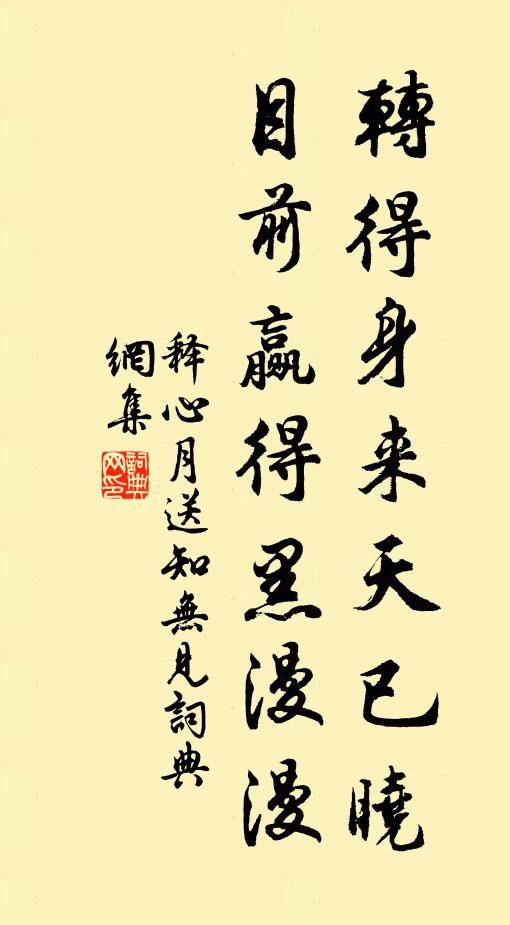 轉得身来天已曉
目前贏得黑漫漫
释心月送知無見詞典
網集
詞典
网印